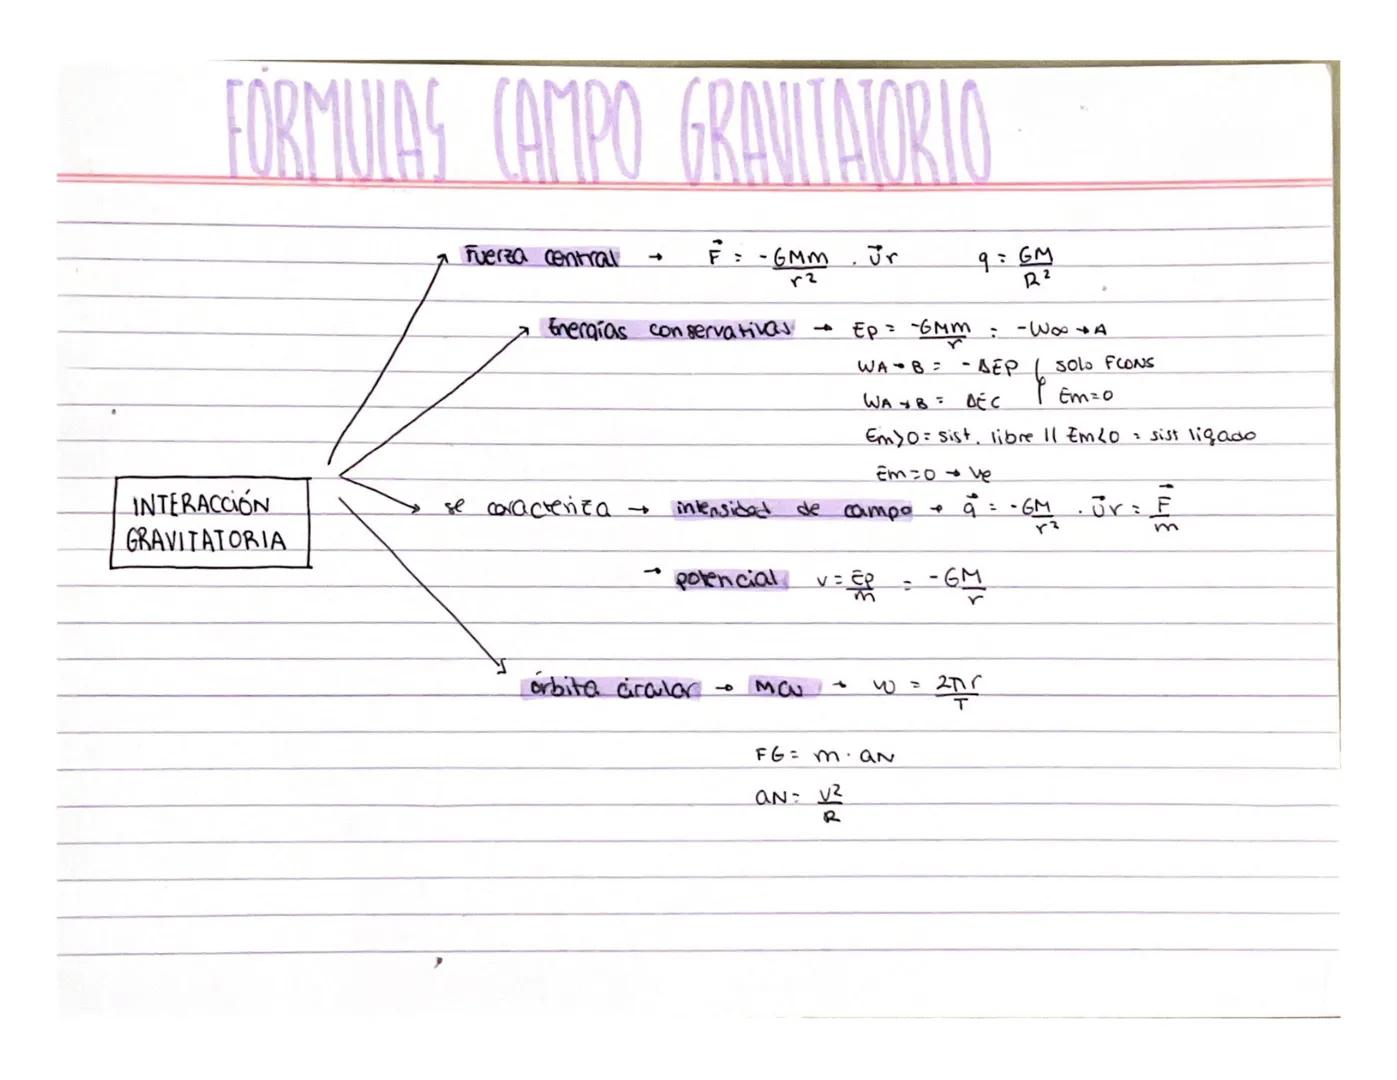 FÓRMULAS CAMPO GRAVITATORIO
Fuerza central → F⃗ = -GMm/r² . U⃗r g = GM/R²
Energías conservativas → Ep = -GMm/r = -W∞→A
WA→B = -ΔEP | SOLO FCONS
WA→B = ΔEC | Em=0
Em>0 = sist. libre || Em<0 = sist ligado
Em=0 → Ve
INTERACCIÓN
GRAVITATORIA
se caracteriza → intensidad de campo → g⃗ = -GM/r² . U⃗r = F⃗/m
→ potencial V = Ep/m = -GM/r
órbita circular → MCU → W = 2πr/T
FG = m · aN
aN = V²/R